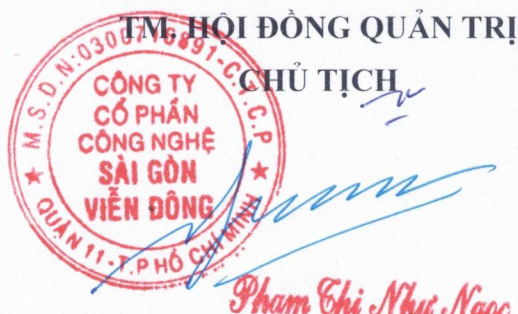 TM. HỘI ĐỒNG QUẢN TRỊ
CHỦ TỊCH
M.S.D.N:0300710891-C.T.C.P
CÔNG TY
CỔ PHẦN
CÔNG NGHỆ
SÀI GÒN
VIỄN ĐÔNG
QUẬN 11-T.P HỒ CHÍ MINH
Phạm Thị Như Ngọc